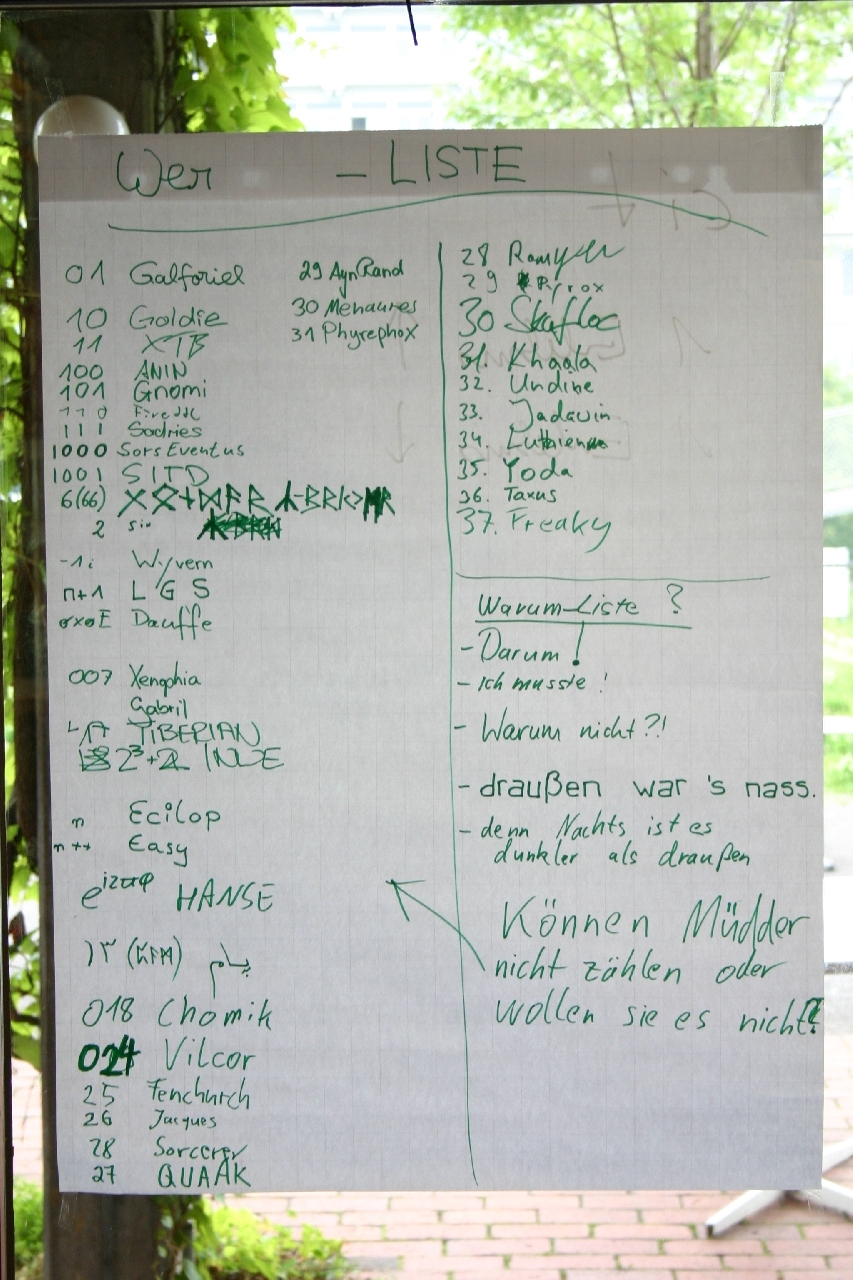 Wer - LISTE
01 Galforiel
10 Goldie
11 XTB
100 ANIN
101 Gnomi
110
111 Sadries
1000 SorsEventus
1001 SITD
6(66)
2 sir
-1i Wyvern
n+1 LGS
Dauffe
007 Xenophia
Gabril
TIBERIAN
2³+2
n Ecilop
n++ Easy
HANSE
018 Chomik
024 Vilcor
25 Fenchurch
26 Jacques
28 Sorcerer
27 QUAAK
29 AynRand
30 Menaures
31 Phyrephox
28
29 Pyrox
30 Skafloc
31. Khaala
32. Undine
33. Jadawin
34. Luthien
35. Yoda
36. Taxus
37. Freaky
Warum-Liste ?
- Darum!
- Ich musste!
- Warum nicht?!
- draußen war's nass.
- denn Nachts ist es
dunkler als draußen
Können Müdder
nicht zählen oder
wollen sie es nicht?